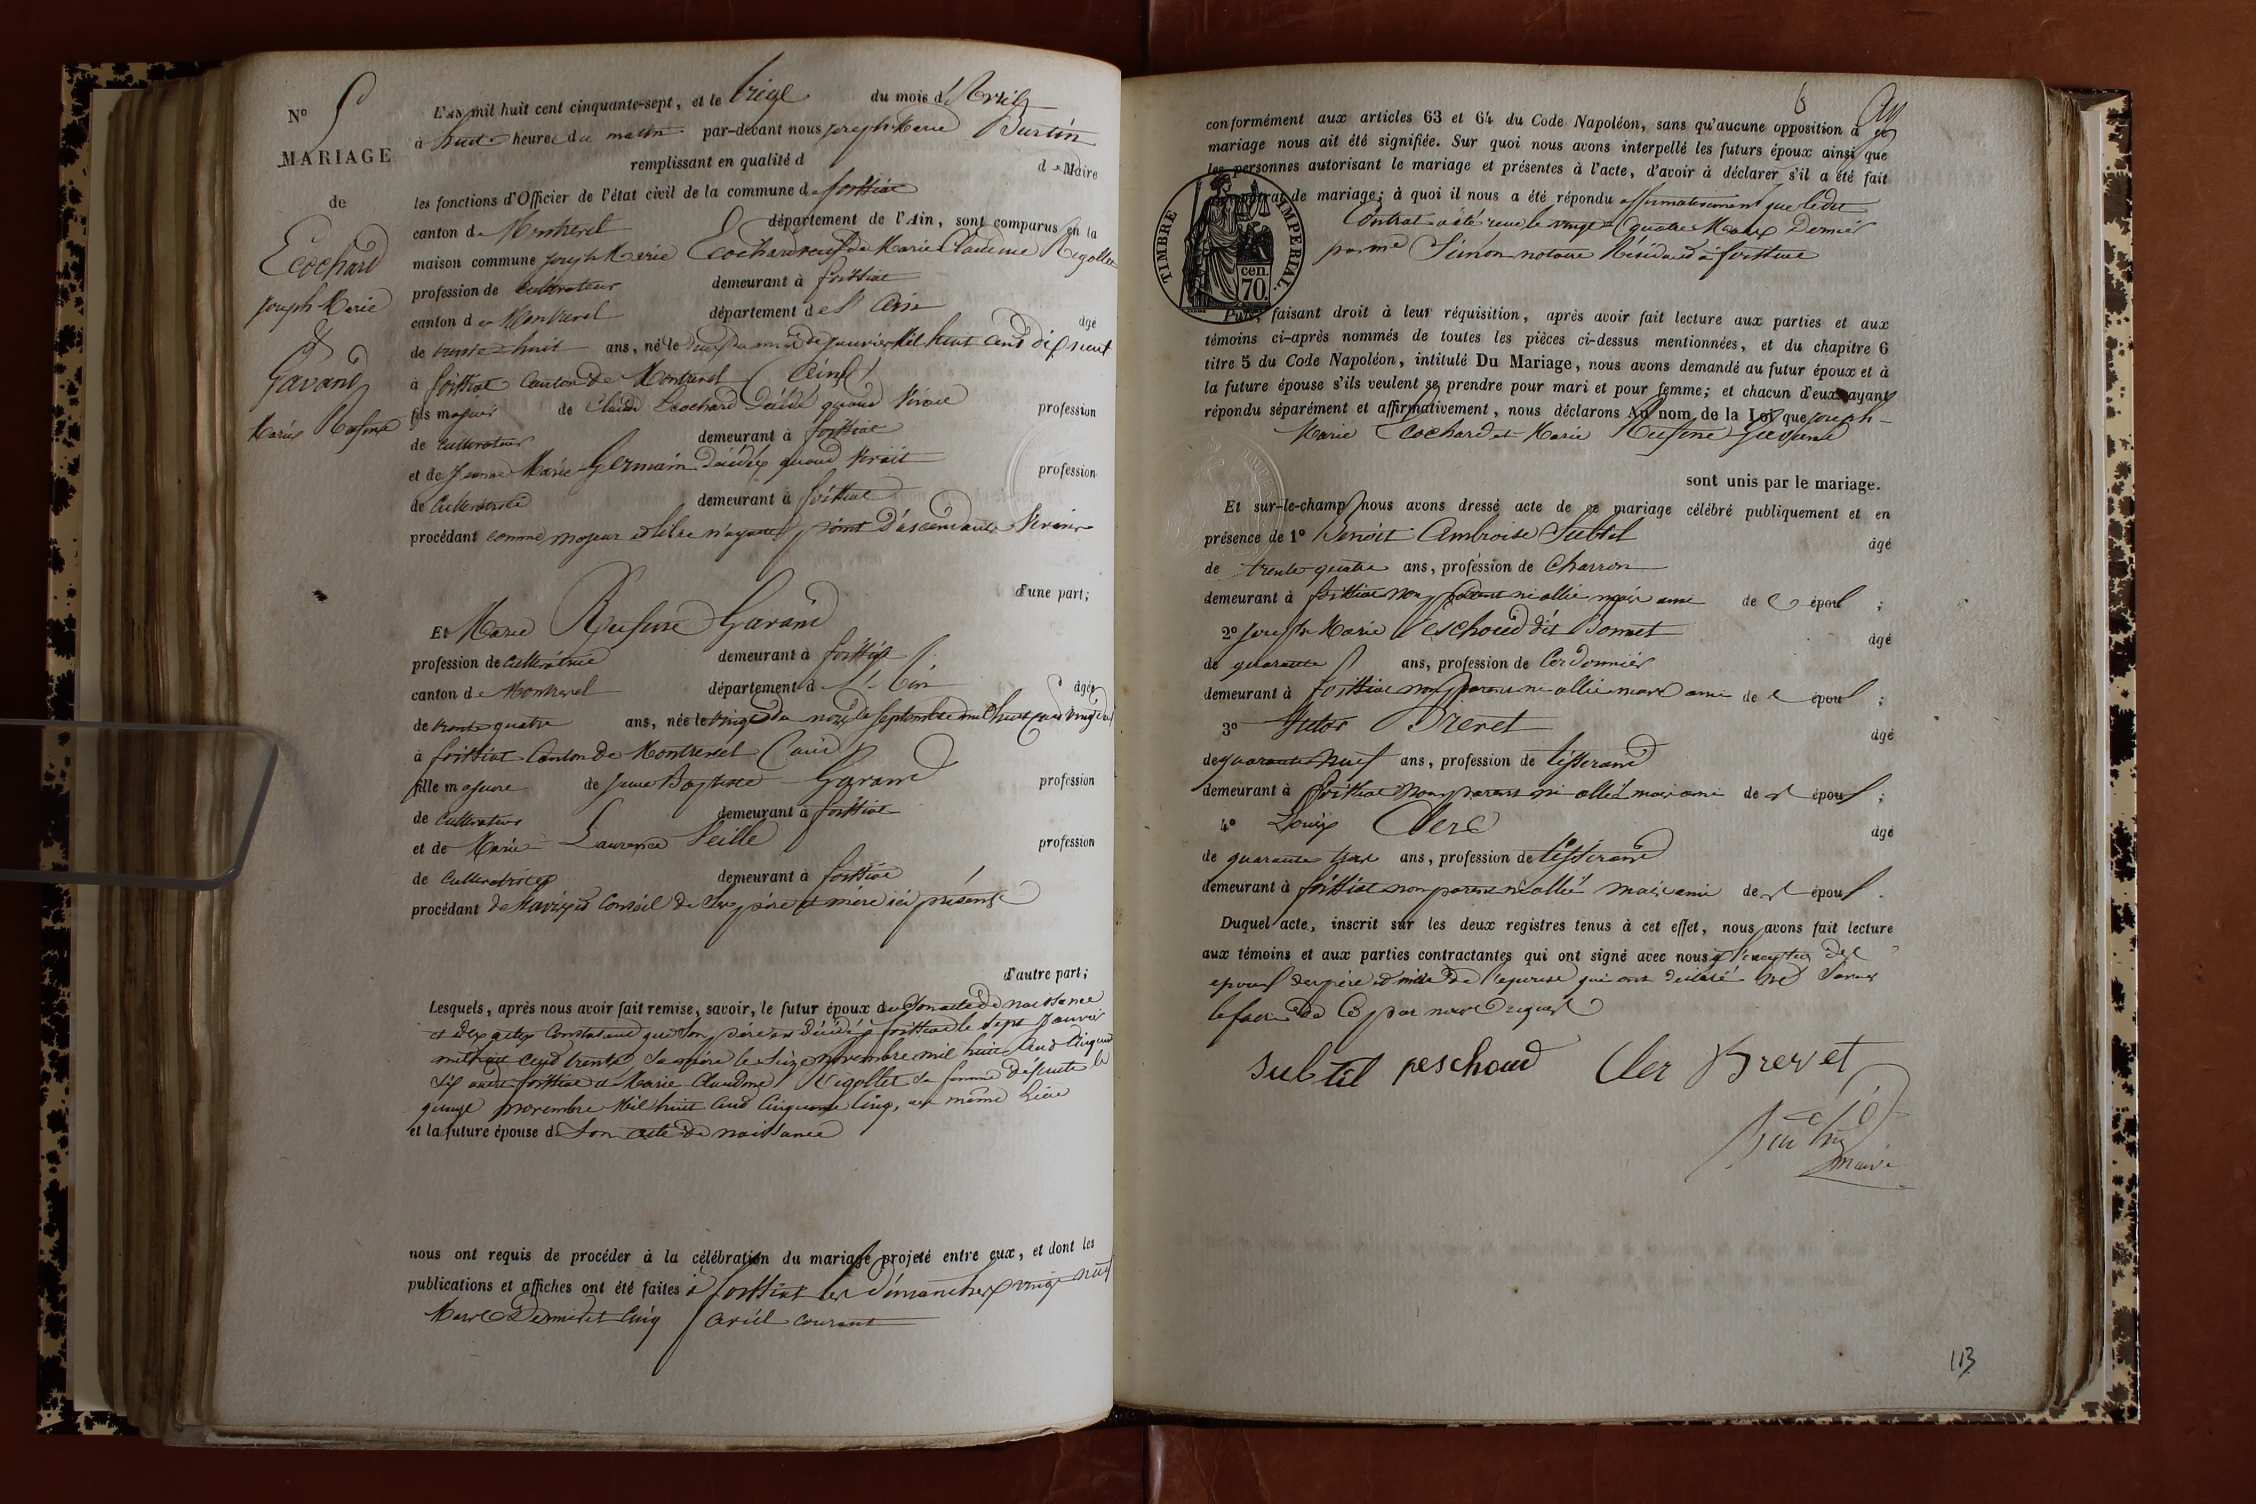 N° 5
MARIAGE
de
Ecochard
Joseph Marie
&
Gavand
Marie Rusine
L'AN mil huit cent cinquante-sept, et le treize du mois d'Avril
à huit heures du matin par-devant nous Joseph Marie Burtin
remplissant en qualité d de Maire
les fonctions d'Officier de l'état civil de la commune de foissiat
canton de Montrevel département de l'Ain, sont comparus en la
maison commune Joseph Marie Ecochard veuf de Marie Claudine Rigollet
profession de cultivateur demeurant à foissiat
canton de Montrevel département de l'Ain âgé
de trente huit ans, né le deux du mois de Janvier Mil huit cent dix neuf
à foissiat Canton de Montrevel (ain)
fils majeur de Claude Ecochard Décédé quand vivait profession
de cultivateur demeurant à foissiat
et de Jeanne Marie Germain Décédée quand vivait profession
de cultivatrice demeurant à foissiat
procédant comme majeur et libre n'ayant point d'ascendants
d'une part;
Et Marie Rusine Gavand
profession de cultivatrice demeurant à foissiat
canton de Montrevel département de l'Ain âgée
de trente quatre ans, née le vingt du mois de Septembre mil huit cent vingt deux
à foissiat Canton de Montrevel (ain)
fille majeure de Jean Baptiste Gavand profession
de cultivateur demeurant à foissiat
et de Marie Laurence Veille profession
de cultivatrice demeurant à foissiat
procédant de l'avis et Conseil de ses père et mère ici présents
d'autre part;
Lesquels, après nous avoir fait remise, savoir, le futur époux de Son acte de naissance
et des actes Constatant que Son père est Décédé à foissiat le Sept Janvier
mil huit cent trente Sa mère le Seize novembre mil huit Cent Cinquante
Six audit foissiat et Marie Claudine Rigollet Sa femme défunte le
quinze novembre Mil huit Cent Cinquante Cinq, au même lieu
et la future épouse de Son acte de naissance
nous ont requis de procéder à la célébration du mariage projeté entre eux, et dont les
publications et affiches ont été faites à foissiat les dimanches vingt neuf
Mars Dernier et Cinq avril courant
6
conformément aux articles 63 et 64 du Code Napoléon, sans qu'aucune opposition à ce
mariage nous ait été signifiée. Sur quoi nous avons interpellé les futurs époux ainsi que
les personnes autorisant le mariage et présentes à l'acte, d'avoir à déclarer s'il a été fait
contrat de mariage; à quoi il nous a été répondu affirmativement que ledit
Contrat a été reçu le vingt quatre Mars Dernier
par me Simon notaire Résidant à foissiat
TIMBRE IMPERIAL.
cen.
70.
Puis, faisant droit à leur réquisition, après avoir fait lecture aux parties et aux
témoins ci-après nommés de toutes les pièces ci-dessus mentionnées, et du chapitre 6
titre 5 du Code Napoléon, intitulé Du Mariage, nous avons demandé au futur époux et à
la future épouse s'ils veulent se prendre pour mari et pour femme; et chacun d'eux ayant
répondu séparément et affirmativement, nous déclarons Au nom de la Loi que Joseph
Marie Ecochard et Marie Rusine Gavand
sont unis par le mariage.
Et sur-le-champ nous avons dressé acte de ce mariage célébré publiquement et en
présence de 1° Benoit Ambroise Subtil âgé
de trente quatre ans, profession de Charron
demeurant à foissiat non parent ni allié mais ami des époux;
2° Joseph Marie Peschoud dit Bonnet âgé
de quarante ans, profession de Cordonnier
demeurant à foissiat non parent ni allié mais ami des époux;
3° Brevet âgé
de quarante neuf ans, profession de tisserand
demeurant à foissiat non parent ni allié mais ami des époux;
4° Louis Clerc âgé
de quarante ans, profession de tisserand
demeurant à foissiat non parent ni allié mais ami des époux.
Duquel acte, inscrit sur les deux registres tenus à cet effet, nous avons fait lecture
aux témoins et aux parties contractantes qui ont signé avec nous à l'exception des
époux des père et mère de l'épouse qui ont déclaré ne Savoir
le faire de Ce par nous requis
Subtil peschoud Cler Brevet
Burtin
maire
113